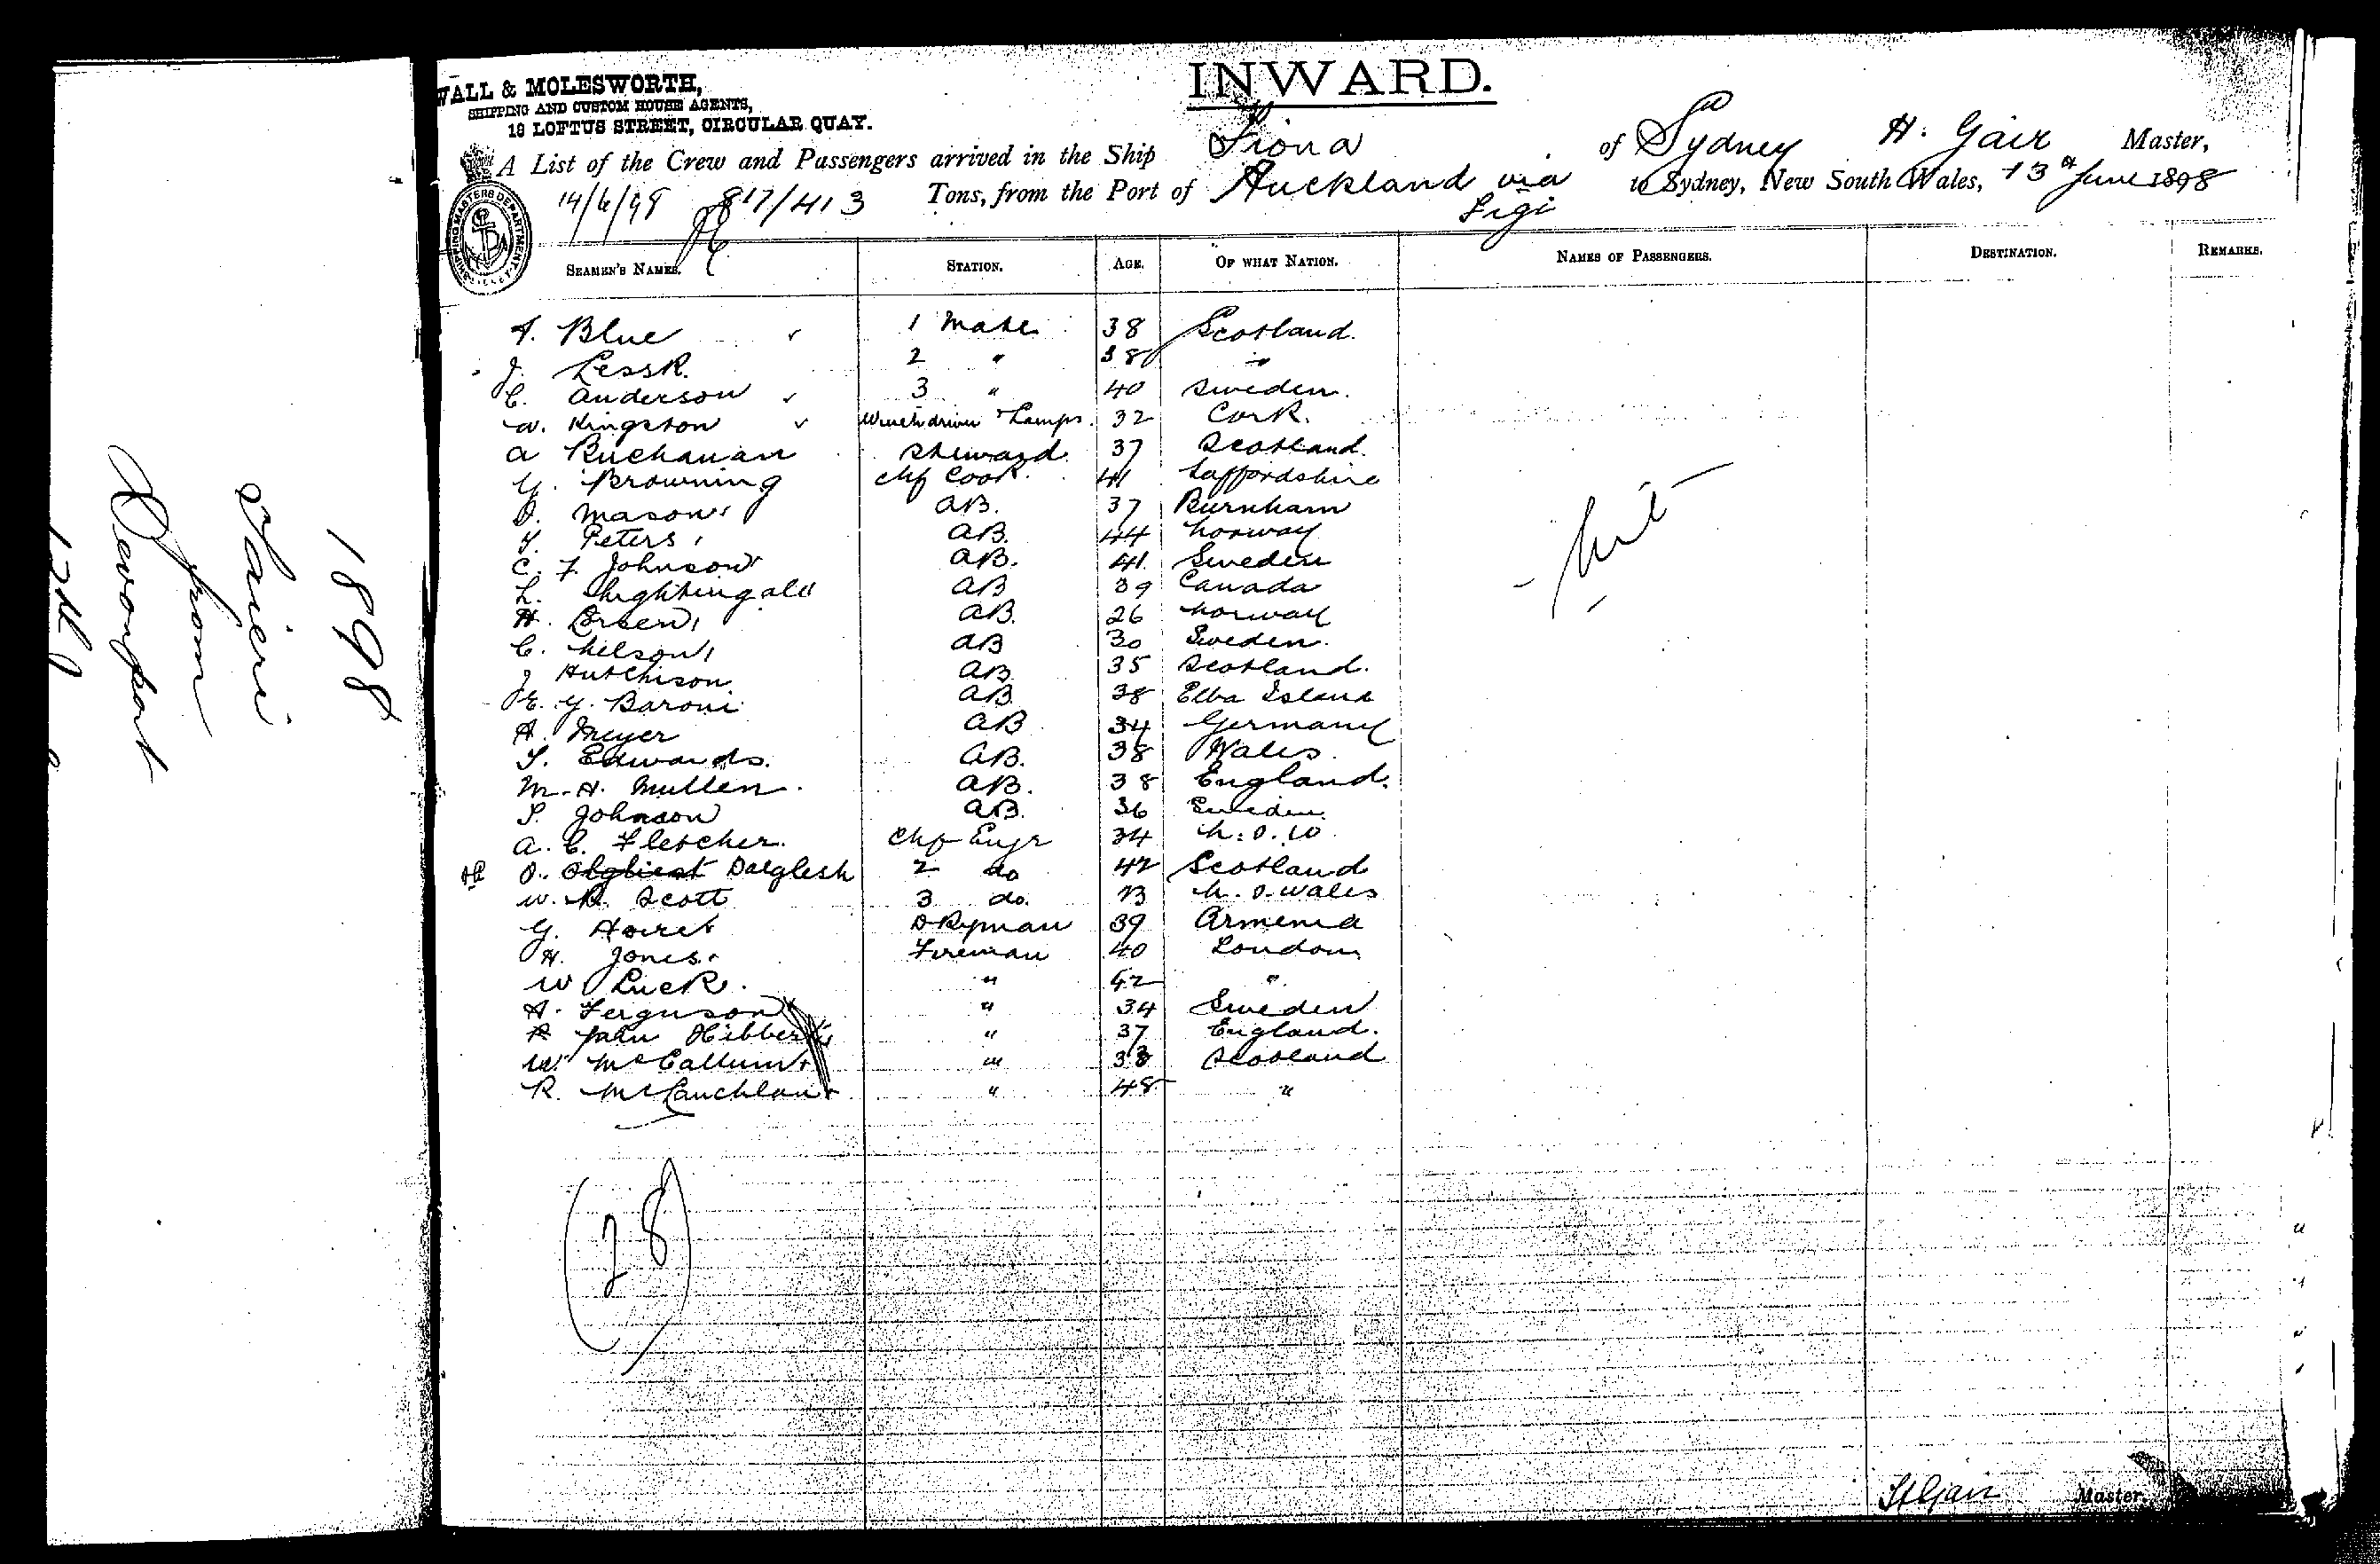 1898
Taieri
from
Devonport
WALL & MOLESWORTH,
SHIPPING AND CUSTOM HOUSE AGENTS,
18 LOFTUS STREET, CIRCULAR QUAY.
INWARD.
A List of the Crew and Passengers arrived in the Ship Fiona of Sydney H. Gair Master,
14/6/98 817/413 Tons, from the Port of Auckland via Fiji to Sydney, New South Wales, 13th June 1898
SHIPPING MASTERS DEPARTMENT
SEAMEN'S NAMES. STATION. AGE. OF WHAT NATION. NAMES OF PASSENGERS. DESTINATION. REMARKS.
Blue 1 Mate 38 Scotland.
J. 2 " 38 "
C. Anderson 3 " 40 Sweden.
W. Kingston Winchdriver & Lamps. 32 Cork.
A Buchanan Steward. 37 Scotland.
G. Browning chf Cook. 41 Staffordshire
Mason AB. 37 Burnham
Peters AB. 44 Norway
C. F. Johnson AB. 41 Sweden
L. Nightingale AB 39 Canada
H. AB. 26 Norway
C. Nelson AB 30 Sweden.
J Hutchison AB 35 Scotland.
E. G. Baroni AB 38 Elba Island
A. Meyer AB 34 Germany
Edwards. AB. 38 Wales.
M. H. Mullen. AB. 38 England.
Johnson AB. 36 Sweden
A. C. Fletcher. Chf Engr 34 N. S. W.
Dalglesh 2 do 42 Scotland
W. R. Scott 3 do. N. S. Wales
G. Dkyman 39 Armenia
H. Jones Fireman 40 London
W Luck. " 42 "
A. Ferguson " 34 Sweden
John Hibbert " 37 England.
W. McCallum " 38 Scotland
R. McLauchlan " 48 "
- Nil -
(28)
H Gair Master